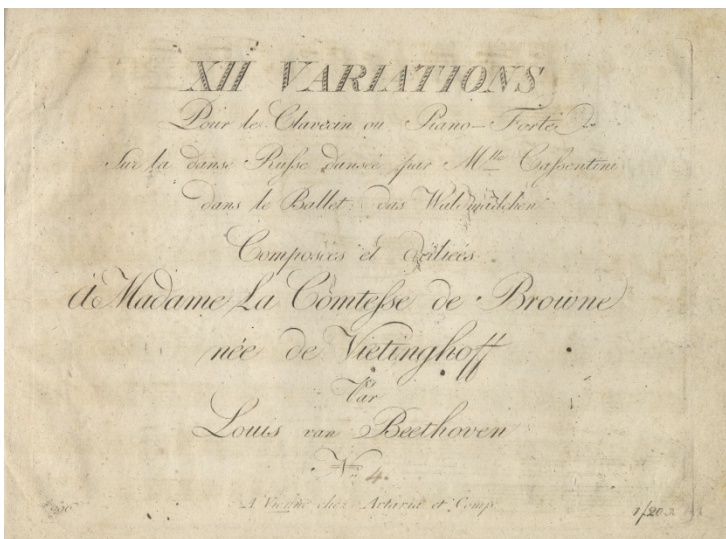 XII VARIATIONS
Pour le Clavecin ou Piano-Forte
Sur la danse Russe dansée par Mlle Cassentini
dans le Ballet: das Waldmädchen
Composées et dediées
à Madame La Comtesse de Browne
née de Vietinghoff
Par
Louis van Beethoven
No 4.
A Vienne chez Artaria et Comp
1/20